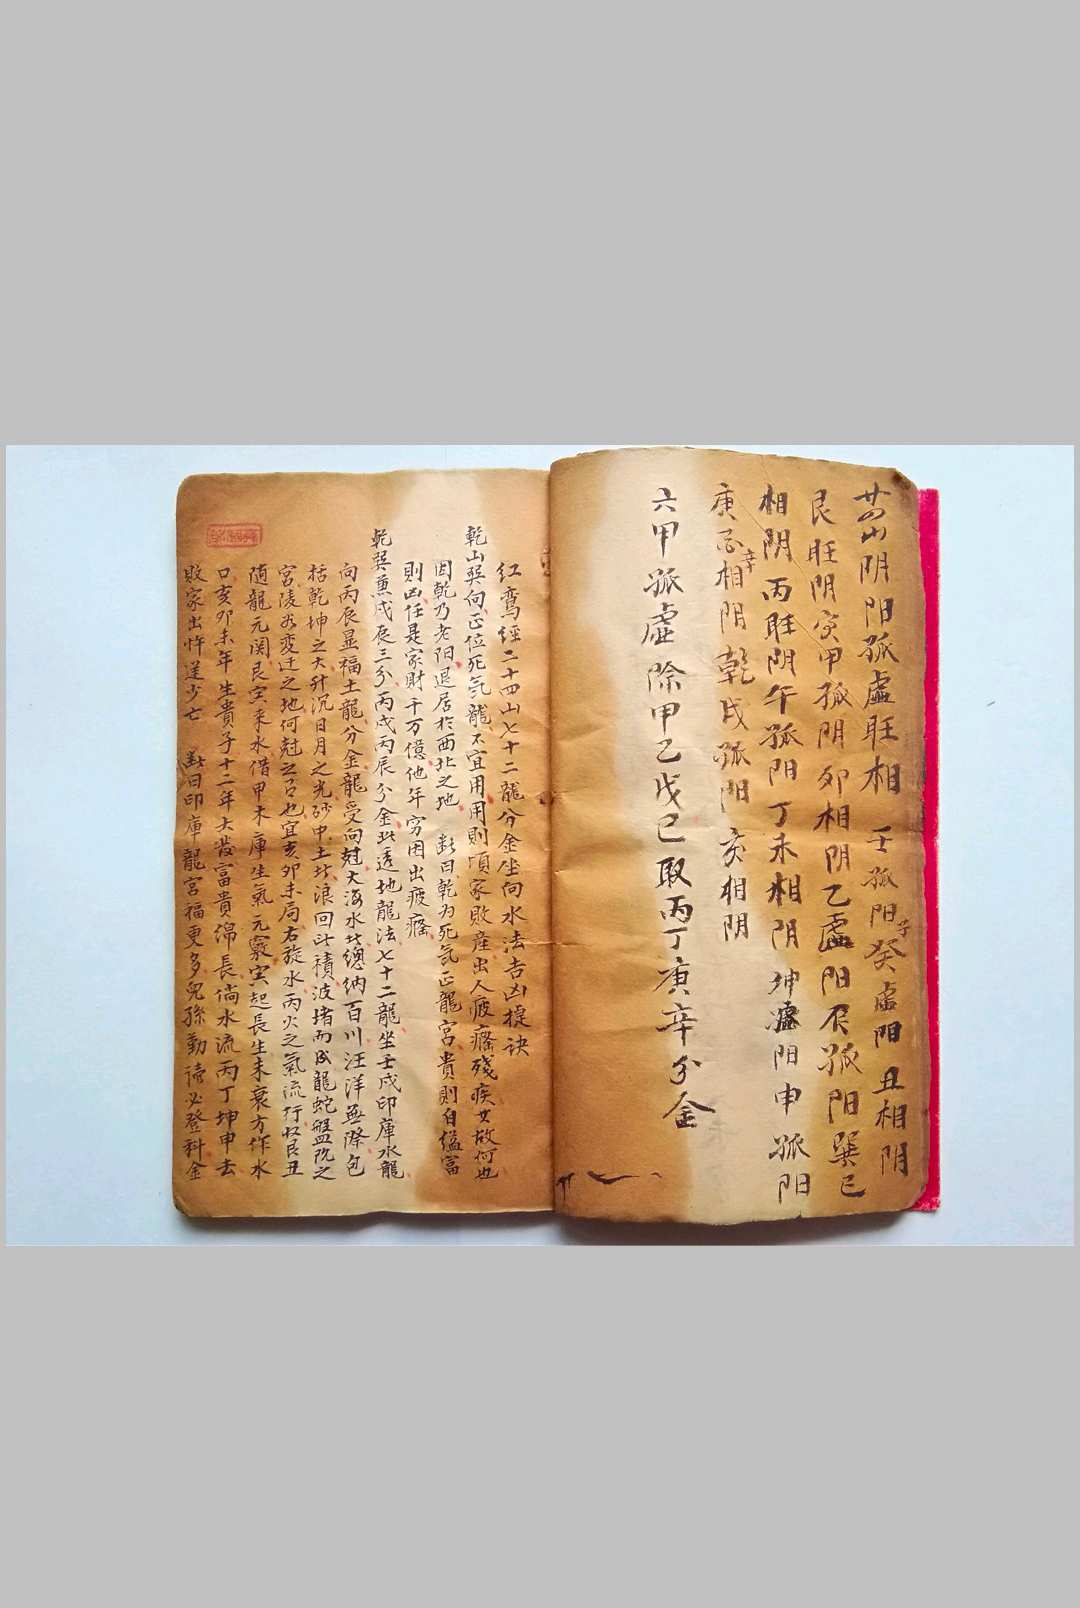 廿四山阴阳孤虛旺相 壬孤阳子癸虛阳丑相阴
艮旺阴寅甲孤阴卯相阴乙虛阳辰孤阳巽巳
相阴丙旺阴午孤阳丁未相阴坤虛阳申孤阳
庚酉辛相阴乾戌孤阳亥相阴
六甲孤虛除甲乙戊己取丙丁庚辛分金
红鸾经二十四山七十二龍分金坐向水法吉凶提诀
乾山巽向正位死气龍不宜用用則頃家敗產出人疲癃殘疾女故何也
因乾乃老阳退居於西北之地 断曰乾为死气正龍宮貴則自榅富
則凶任是家財千万億他年穷困出疲癃
乾巽兼戌辰三分丙戌丙辰分金此透地龍法七十二龍坐壬戌印庫水龍
向丙辰显福土龍分金龍受向尅大海水此總纳百川汪洋無際包
括乾坤之大升沉日月之光砂中土此浪回此積波堵而成龍蛇盤阢之
宮陵为变迁之地何尅之有也宜亥卯未局右旋水丙火之氣流行収艮丑
随龍元関艮宀来水借甲木庫生氣元竅宀起長生未衰方作水
口亥卯未年生貴子十二年大發富貴綿長倘水流丙丁坤申去
敗家出忤逆少亡 断曰印庫龍宮福更多兒孫勤读必登科金